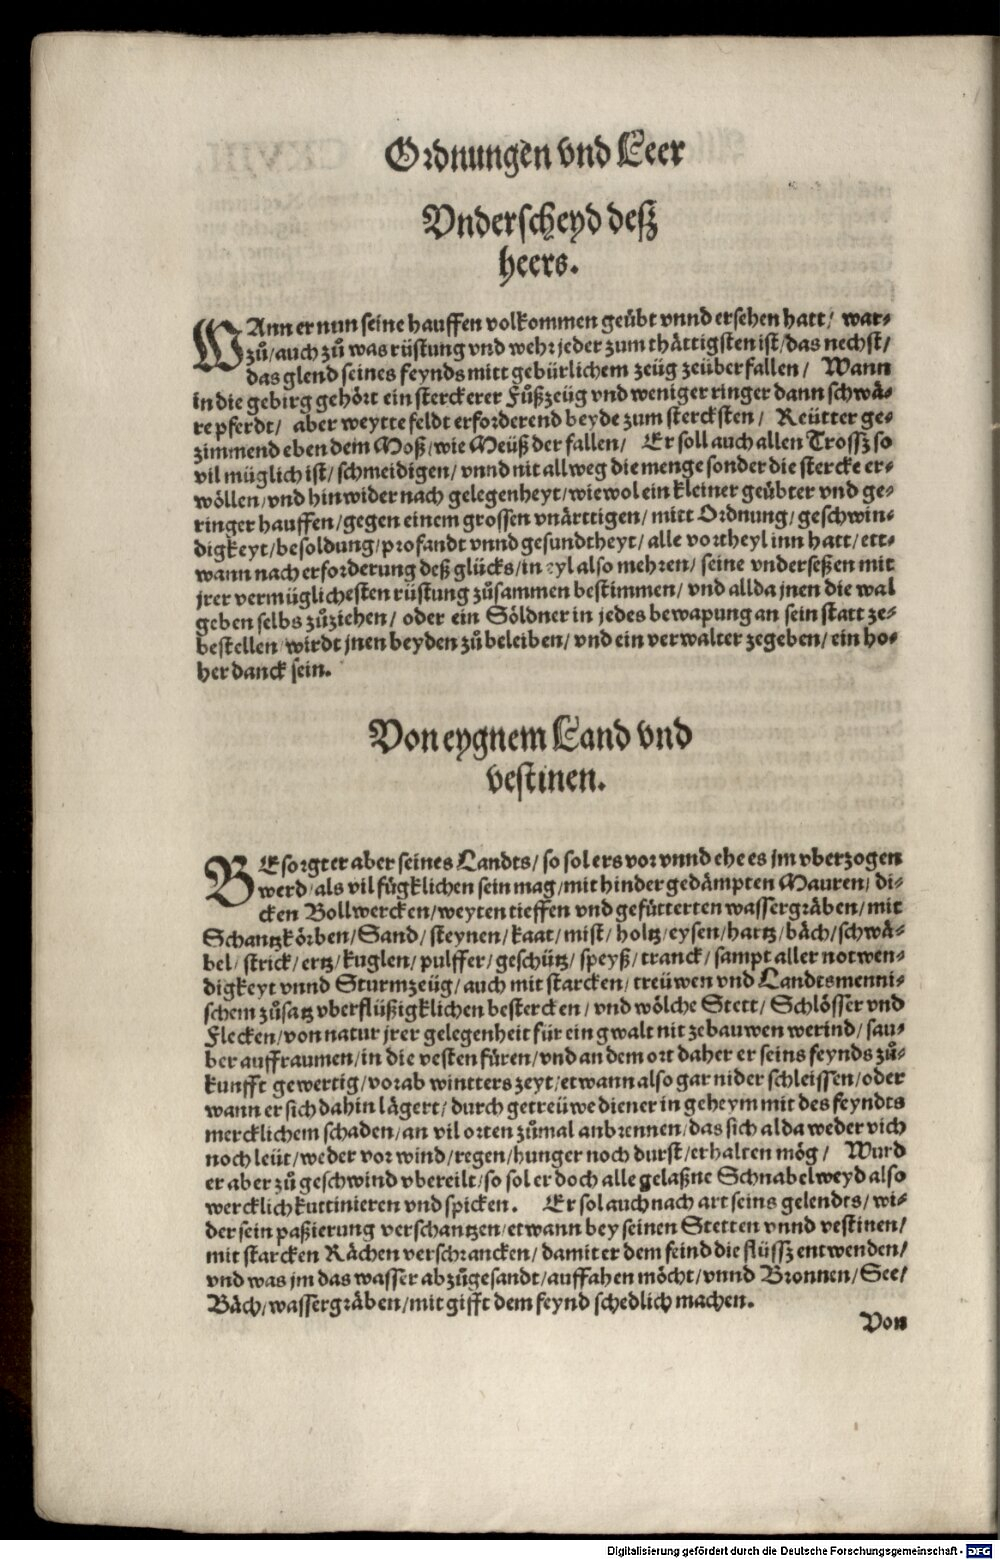 Ordnungen vnd Leer
Vnderscheyd desz
heers.
WAnn er nun seine hauffen volkommen geübt vnnd ersehen hatt/ war⸗
zů/auch zů was rüstung vnd wehr jeder zum thättigsten ist/das nechst/
das glend seines feynds mitt gebürlichem zeüg zeüberfallen/ Wann
in die gebirg gehört ein sterckerer Fůßzeüg vnd weniger ringer dann schwä⸗
re pferdt/ aber weytte feldt erforderend beyde zum stercksten/ Reütter ge⸗
zimmend eben dem Moß/wie Meüß der fallen/ Er soll auch allen Trossz so
vil müglich ist/schmeidigen/vnnd nit allweg die menge sonder die stercke er⸗
wöllen/vnd hinwider nach gelegenheyt/wiewol ein kleiner geübter vnd ge⸗
ringer hauffen/gegen einem grossen vnärttigen/mitt Ordnung/geschwin⸗
digkeyt/besoldung/profandt vnnd gesundtheyt/alle vortheyl inn hatt/ett⸗
wann nach erforderung deß glücks/in eyl also mehren/ seine vnderseßen mit
jrer vermüglichesten rüstung zůsammen bestimmen/ vnd allda jnen die wal
geben selbs zůziehen/ oder ein Söldner in jedes bewapung an sein statt ze⸗
bestellen/wirdt jnen beyden zů beleiben/vnd ein verwalter zegeben/ein ho⸗
her danck sein.
Von eygnem Land vnd
vestinen.
BEsorgt er aber seines Landts/so sol ers vor vnnd ehe es jm vberzogen
werd/als vil fügklichen sein mag/mit hindergedämpten Mauren/di⸗
cken Bollwercken/weyten tieffen vnd gefütterten wassergräben/mit
Schantzkörben/Sand/steynen/kaat/mist/holtz/eysen/hartz/bäch/schwä⸗
bel/strick/ertz/kuglen/pulffer/geschütz/speyß/tranck/sampt aller notwen⸗
digkeyt vnnd Sturmzeüg/auch mit starcken/treüwen vnd Landtsmenni⸗
schem zůsatz vberflüßigklichen bestercken/vnd wölche Stett/Schlösser vnd
Flecken/von natur jrer gelegenheit für ein gwalt nit zebauwen werind/sau⸗
ber auffraumen/in die vesten füren/vnd an dem ort daher er seins feynds zů⸗
kunfft gewertig/vorab wintters zeyt/etwann also gar nider schleissen/oder
wann er sich dahin lägert/durch getreüwe diener in geheym mit des feyndts
mercklichem schaden/an vil orten zůmal anbrennen/das sich alda weder vich
noch leüt/weder vor wind/regen/hunger noch durst/erhalten mög/ Wurd
er aber zů geschwind vbereilt/so sol er doch alle gelaßne Schnabelweyd also
wercklich kuttinieren vnd spicken. Er sol auch nach art seins gelendts/wi⸗
der sein paßierung verschantzen/etwann bey seinen Stetten vnnd vestinen/
mit starcken Rächen verschrancken/damit er dem feind die flüssz entwenden/
vnd was jm das wasser ab zůgesandt/auffahen möcht/vnnd Bronnen/See/
Bäch/wassergräben/mit gifft dem feynd schedlich machen.
Von
Digitalisierung gefördert durch die Deutsche Forschungsgemeinschaft - DFG